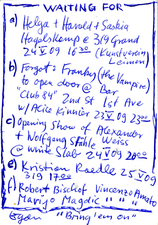 WAITING FOR
a) Helga + Harold + Saskia
Hagelskamp @ 3/9 Grand
24 V 09 16:00 (Kunstverein
Leimen)
b) Forgot: Franky (the Vampire)
to open door @ Bar
"Club 84" 2nd St 1st Ave
w/ Acire Kinnier 23 V 09 23:00
c) Opening Show of Alexander
+ Wolfgang Stähle Weiss
@ White Slab 24 V 09 20:00
e) Kristian Raedle 25 V 09
3/9 17:00
f) Robert Bischof Vincenzo Amato
Mavigo Magdic " " "
"Bring 'em on"